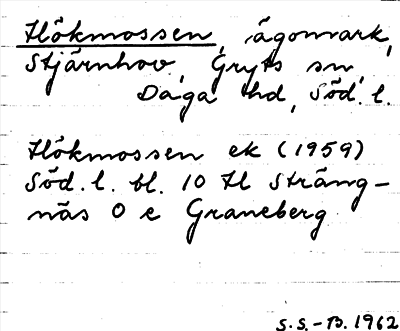 Hökmossen, ägomark,
Stjärnhov, Gryts sn,
Daga hd, Söd. l.
Hökmossen ek (1959)
Söd. l. bl. 10 H Sträng-
näs O e Graneberg
S.S.-B. 1962